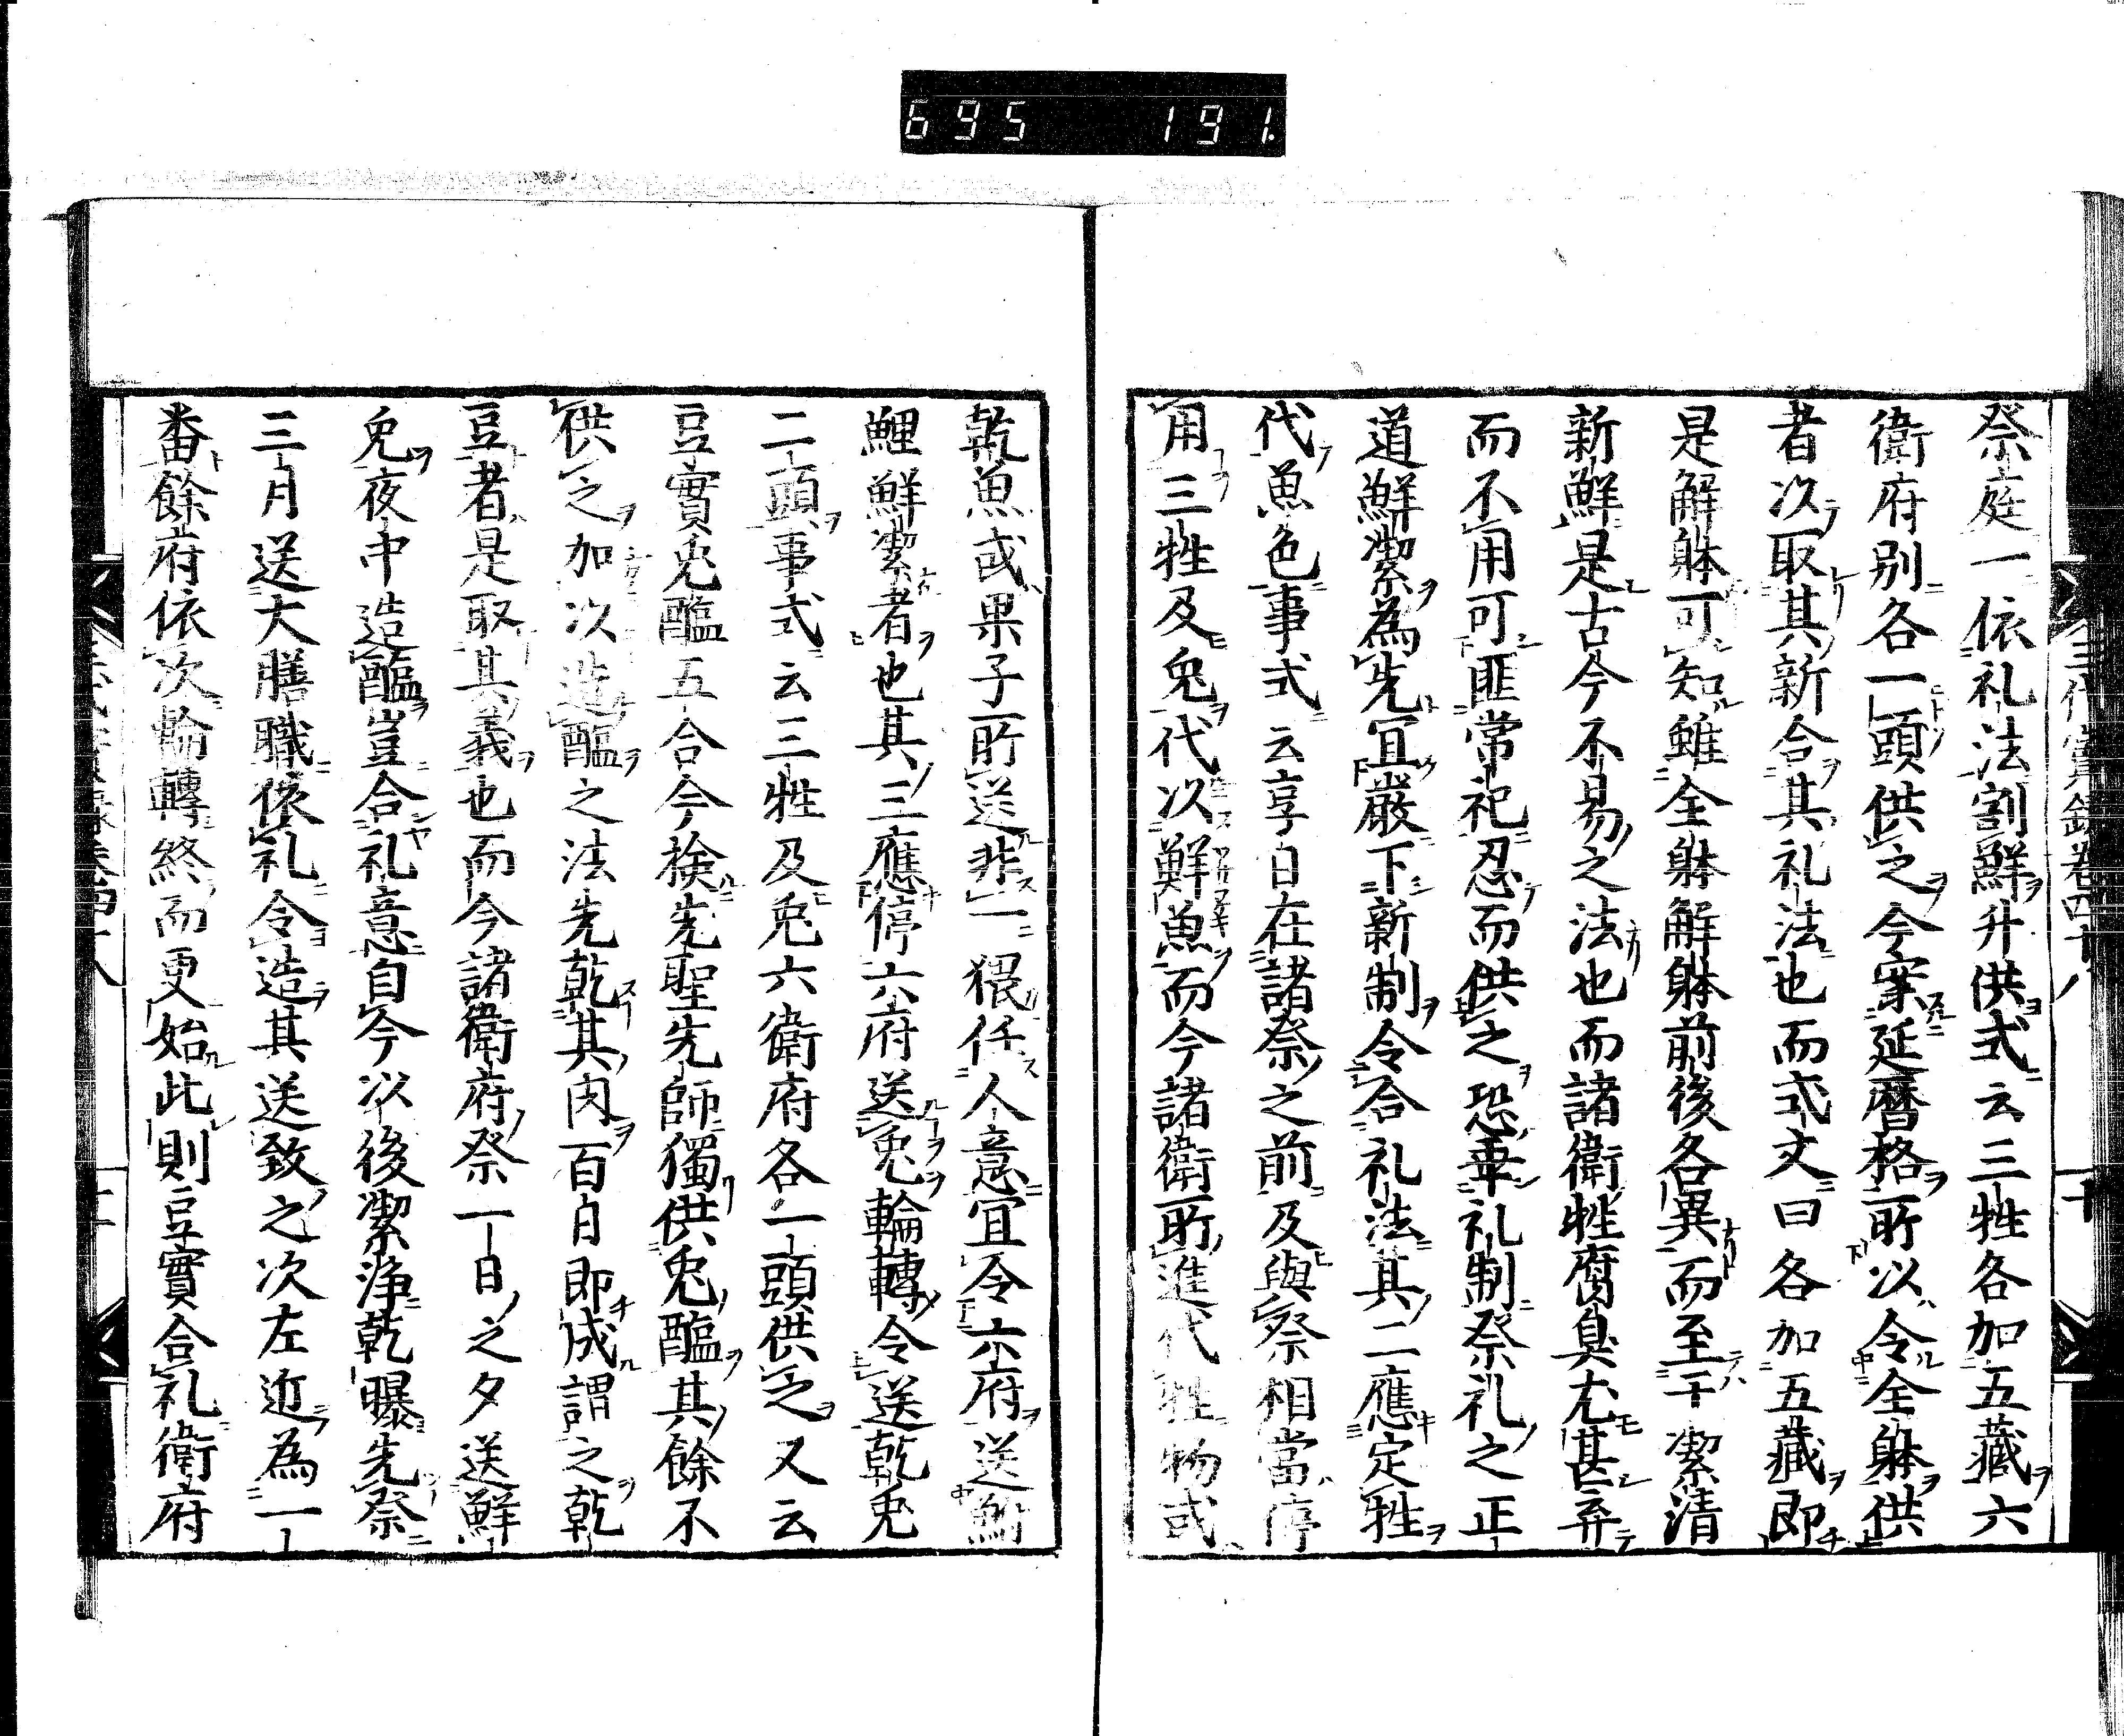 695 191
祭庭一依礼法割鮮升供式云三牲各加五藏六
衛府别各一頭供之今案延暦格所以令全躰供
者次取其新合其礼法也而式文曰各加五藏即
是解躰可知雖全躰解躰前後各異而至于潔清
新鮮是古今不易之法也而諸衛牲腐臭尤甚弃
而不用可匪常祀忍而供之恐乖礼制祭礼之正
道鮮潔為先宜嚴下新制令合礼法其二應定牲
代魚色事式云享日在諸祭之前及與祭相當停
用三牲及兔代以鮮魚而今諸衛所進代牲物或
乾魚或果子所送非一猥任人意宜令六府送鮒
鯉鮮潔者也其三應停六府送兔輪轉令送乾兔
二頭事式云三牲及兔六衛府各一頭供之又云
豆實兔醢五合今検先聖先師獨供兔醢其餘不
供之加以造醢之法先乾其肉百日即成謂之乾
豆者是取其義也而今諸衛府祭一日之夕送鮮
兔夜中造醢豈合礼意自今以後潔浄乾曝先祭
三月送大膳職依礼令造其送致之次左近為一
番餘府依次輪轉終而更始此則豆實合礼衛府